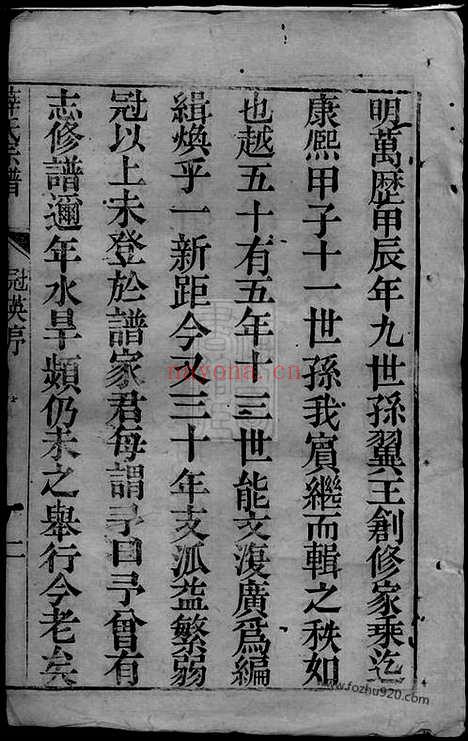 明萬歷甲辰年九世孫翼王創修家乘迄
康熈甲子十一世孫我賓繼而輯之秩如
也越五十有五年十三世能文復廣爲編
緝煥乎一新距今又三十年支派益繁弱
冠以上未登於譜家君每謂予曰予曾有
志修譜邇年水旱頻仍未之舉行今老矣
薛氏宗譜
冠英序
二
nayona.cn
www.fozhu920.com